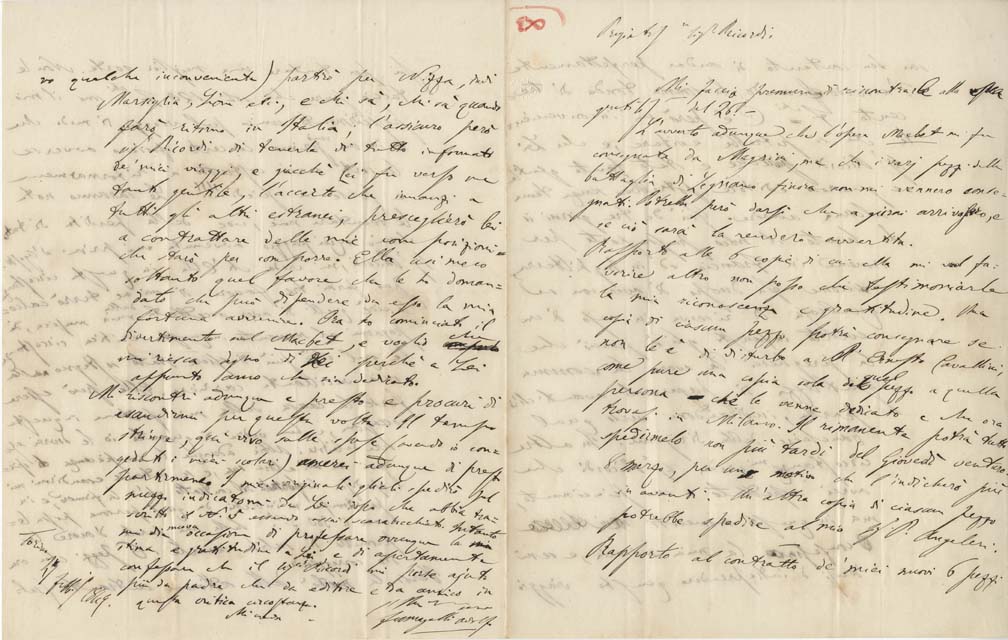 Pregiat.^mo Sig.^r Ricordi
Mi faccio premura di riscontrarle alla
del 25. –
L'avverto adunque che l'opera Macbet mi fu
consegnata da Magrini, ma che i varj pezzi della
battaglia di Legnano finora non mi vennero conse-
gnati. Potrebbe però darsi che a giorni arrivassero, e
se ciò sarà la renderò avvertita.
Rapporto alle 6 copie di cui ella mi vuol fa-
vorire altro non posso che testimoniarle
la mia riconoscenza e gratitudine. Una
copia di ciascun pezzo potrà consegnare se
non le è di disturbo a Ernesto Cavallini,
come pure una copia sola del pezzo a quella
persona che le venne dedicato e che ora
trova in Milano. Il rimanente potrà tutto
spedirmelo non più tardi del Giovedì venturo
8 marzo, per un motivo che indicherò più
in avanti. Un'altra copia di ciascun pezzo
potrebbe spedire al mio Angeleri.
Rapporto al contratto de' miei nuovi 6 pezzi
vo qualche inconveniente) partirò per Nizza, indi
Marsiglia, Lione etc., e chi sà, chi sà quando
farò ritorno in Italia; l'assicuro però
Ricordi di tenerla di tutto informato
de' miei viaggi, e giacchè Lei fu verso me
tanto gentile, l'accerto che innanzi a
tutti gli altri estranei, presceglierò lei
a contrattare delle mie composizioni
che starò per comporre. Ella usi meco
soltanto quel favore che le ho doman-
dato che può dipendere da esso la mia
fortuna avvenire. Ora ho cominciato il
divertimento sul Macbet, e voglio che
mi riesca degno di Lei perchè a Lei
appunto amo che sia dedicato.
Mi riscontri adunque e presto e procuri di
esaudirmi per questa volta. Il tempo
stringe, quì vivo sulle spese avendo io con-
gedati i miei scolari) amerei adunque di presto
partirmene. I miei originali glieli spedirò pel
mezzo indicatomi da Lei dopo che abbia tra-
scritto essendo assai scarabocchiati. Intanto
mi dia nuova occasione di professare ovunque la mia
stima, e gratitudine a Lei e di apertamente
confessare che il Sig.^r Ricordi mi porse ajuto
più da padre che da editore e da amico in
questa critica circostanza.
Mi creda
Fumagalli Adolfo
Torino